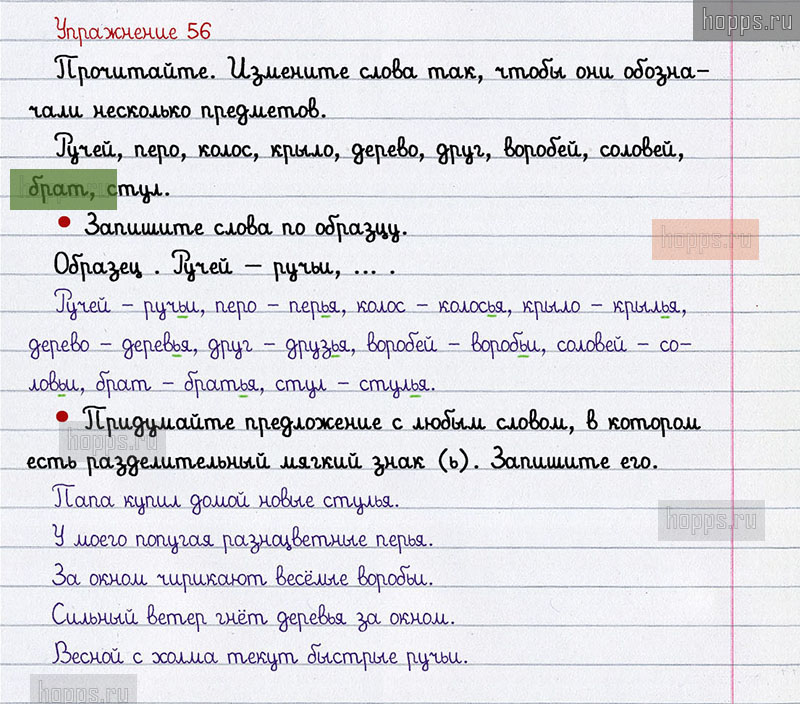 hopps.ru
Упражнение 56
Прочитайте. Измените слова так, чтобы они обозна-
чали несколько предметов.
Ручей, перо, колос, крыло, дерево, друг, воробей, соловей,
брат, стул.
• Запишите слова по образцу.
hopps.ru
Образец . Ручей – ручьи, ... .
Ручей – ручьи, перо – перья, колос – колосья, крыло – крылья,
дерево – деревья, друг – друзья, воробей – воробьи, соловей – со-
ловьи, брат – братья, стул – стулья.
• Придумайте предложение с любым словом, в котором
hopps.ru
есть разделительный мягкий знак (ь). Запишите его.
Папа купил домой новые стулья.
hopps.ru
У моего попугая разнацветные перья.
За окном чирикают весёлые воробьи.
Сильный ветер гнёт деревья за окном.
Весной с холма текут быстрые ручьи.
hopps.ru